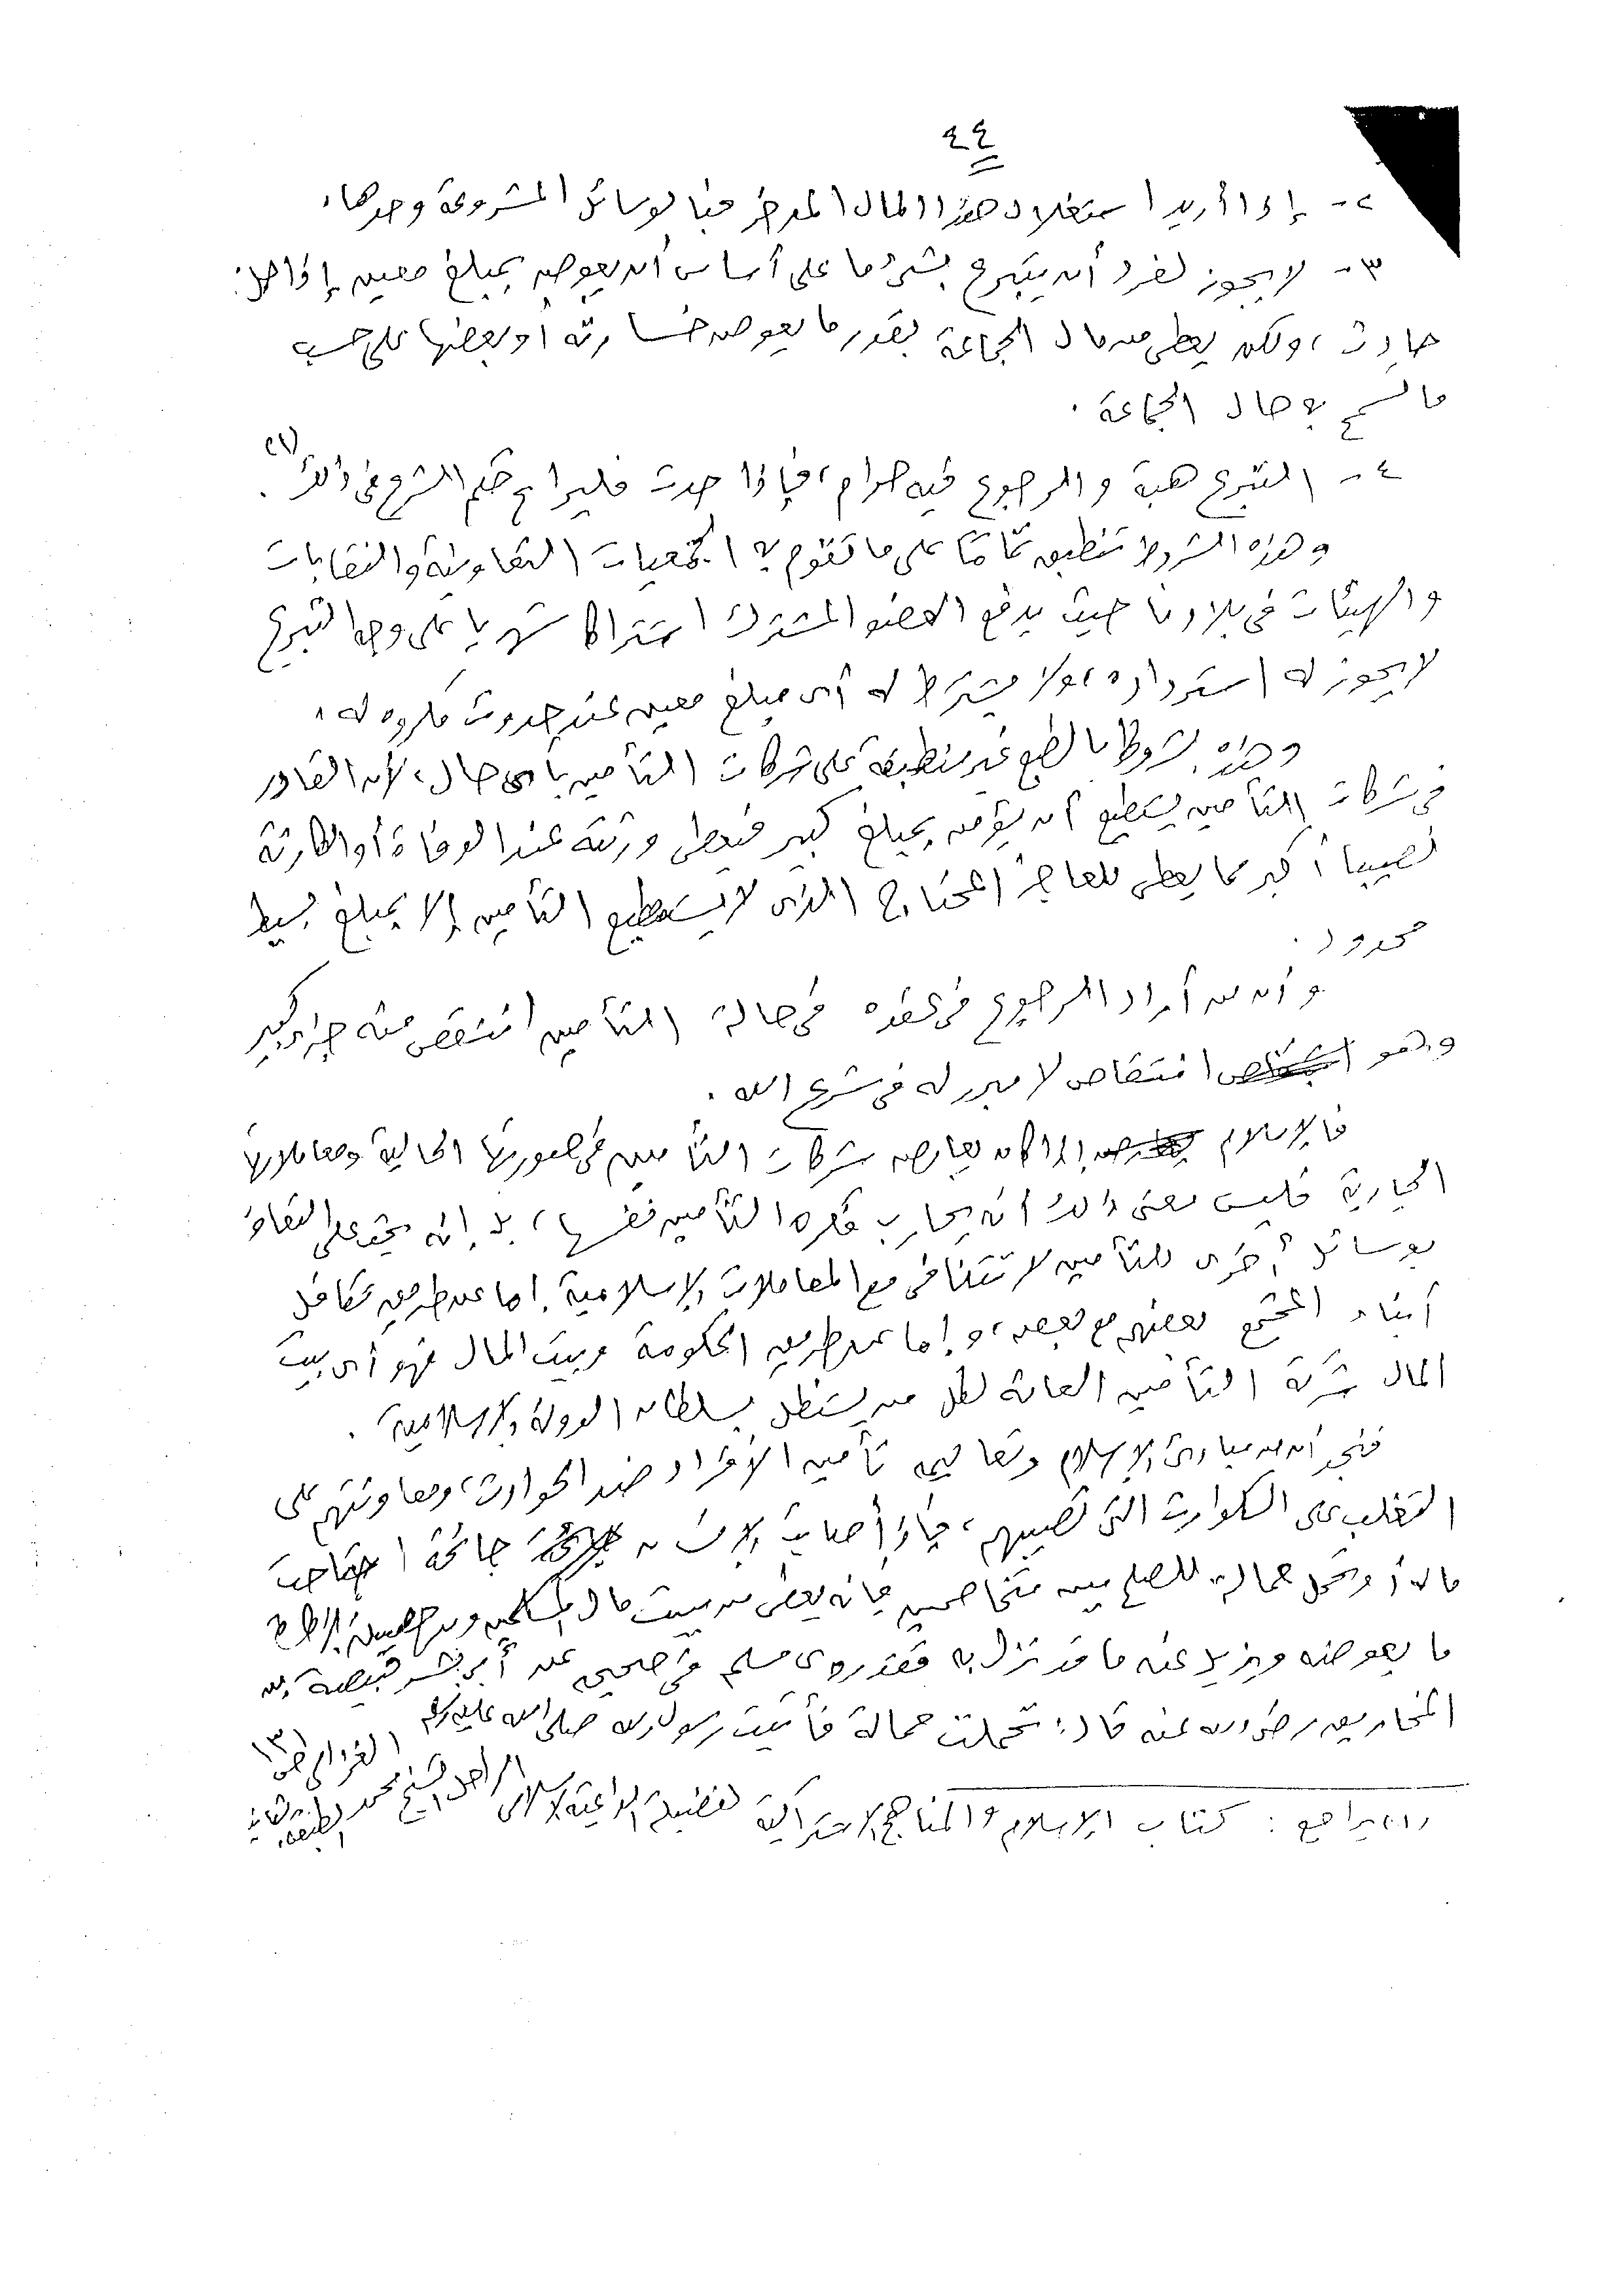 ٤٤
٢ - إذا أريد استغلال هذا المال المدخر فبالوسائل المشروعة وحدها.
٣ - لا يجوز لفرد أن يتبرع بشئ ما على أساس أن يعوض بمبلغ معين إذا حل
حادث، ولكن يعطى من مال الجماعة بقدر ما يعوض خسارته أو بعضها على حسب
ما تسمح به حال الجماعة.
٤ - التبرع هبة والرجوع فيه حرام، فإذا حدث فليراع حكم الشرع فى ذلك (١).
وهذه الشروط تنطبق تمامًا على ما تقوم به الجمعيات التعاونية والنقابات
والهيئات فى بلادنا حيث يدفع العضو المشترك اشتراكا شهريا على وجه التبرع
لا يجوز له استرداده، ولا يشترط له أى مبلغ معين عند حدوث مكروه له.
وهذه شروط بالطبع غير منطبقة على شركات التأمين بأى حال، لأن القادر
فى شركات التأمين يستطيع أن يؤمن بمبلغ كبير فيعطى ورثته عند الوفاة أو الكارثة
نصيبا أكبر مما يعطى للعاجز المحتاج الذى لا يستطيع التأمين إلا بمبلغ بسيط
محدود.
وأن من أراد الرجوع فى عقده فى حالة التأمين انتقص منه جزء كبير
وهو انتقاص لا مبرر له فى شرع الله.
فالإسلام إذا كان يعارض شركات التأمين فى صورتها الحالية ومعاملاتها
الجارية فليس معنى ذلك أنه يحارب فكرة التأمين نفسها، بل إنه يحث على التعاون
بوسائل أخرى للتأمين لا تتنافى مع المعاملات الإسلامية. إما عن طريق تكافل
أبناء المجتمع بعضهم مع بعض، وإما عن طريق الحكومة وبيت المال فهو أى بيت
المال شركة التأمين العامة لكل من يستظل بسلطان الدولة الإسلامية.
فنجد أن من مبادئ الإسلام وتعاليمه تأمين الأفراد ضد الحوادث، ومعاونتهم على
التغلب على الكوارث التى تصيبهم، فإذا أصابت الإنسان جائحة اجتاحت
ماله أو تحمل حمالة للصلح بين متخاصمين فإنه يعطى من بيت مال المسلمين ومن حصيلة الزكاة
ما يعوضه ويزيل عنه ما قد نزل به فقد روى مسلم فى صحيحه عن أبى بشر قبيصة بن
المخارق رضى الله عنه قال: تحملت حمالة فأتيت رسول الله صلى الله عليه وسلم
(١) يراجع: كتاب الإسلام والمناهج الاشتراكية لفضيلة الداعية الإسلامى الراحل الشيخ محمد الغزالى